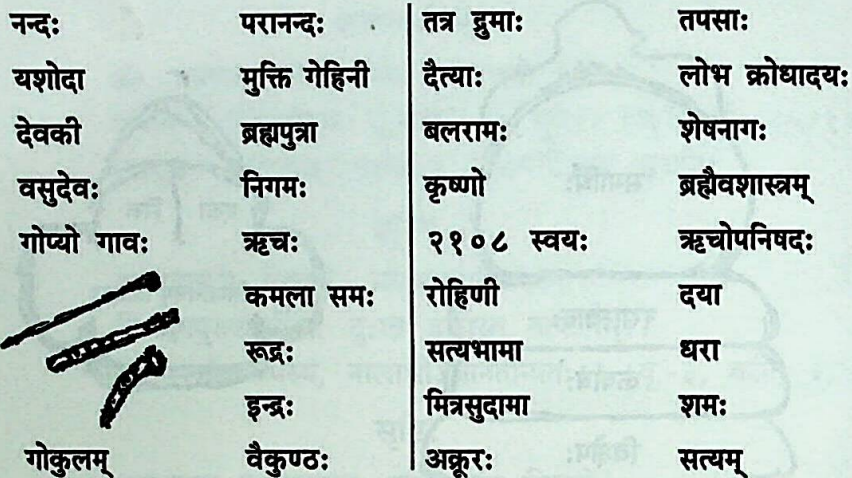 नन्दः परानन्दः तत्र द्रुमाः तपसाः
यशोदा मुक्ति गेहिनी दैत्याः लोभ क्रोधादयः
देवकी ब्रह्मपुत्रा बलरामः शेषनागः
वसुदेवः निगमः कृष्णो ब्रह्मैवशास्त्रम्
गोप्यो गावः ऋचः २१०८ स्वयः ऋचोपनिषदः
कमला समः रोहिणी दया
रूद्रः सत्यभामा धरा
इन्द्रः मित्रसुदामा शमः
गोकुलम् वैकुण्ठः अक्रूरः सत्यम्